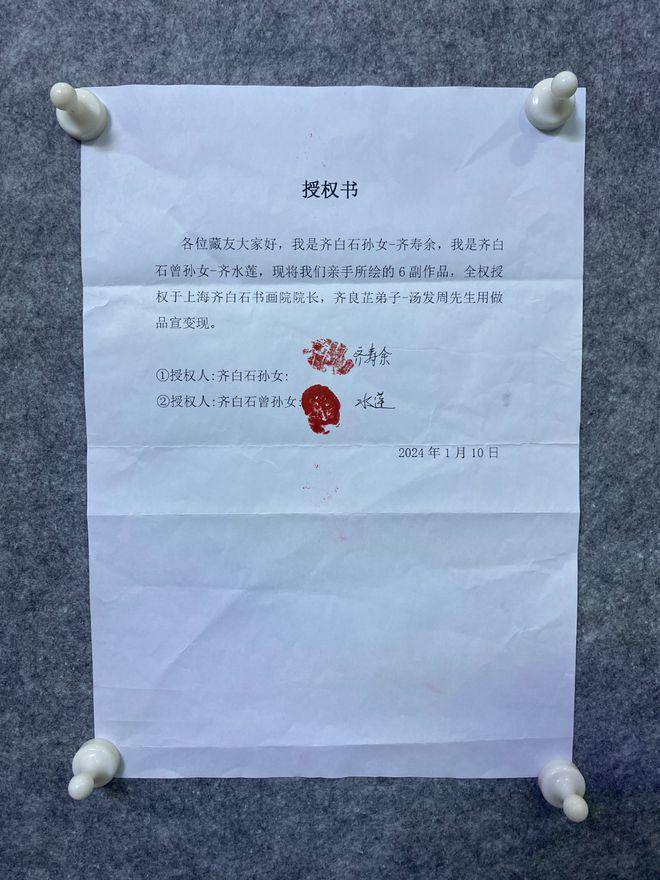 授权书
各位藏友大家好，我是齐白石孙女-齐寿余，我是齐白
石曾孙女-齐水莲，现将我们亲手所绘的6副作品，全权授
权于上海齐白石书画院院长，齐良芷弟子-汤发周先生用做
品宣变现。
①授权人:齐白石孙女: 齐寿余
②授权人:齐白石曾孙女: 水莲
2024年1月10日